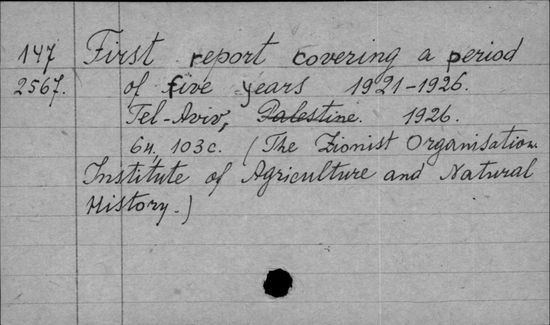 147 First report covering a period
2567. of five years 1921-1926.
Tel-Aviv, Palestine. 1926.
64, 103 c. (The Zionist Organisation.
Institute of Agriculture and Natural
History.)